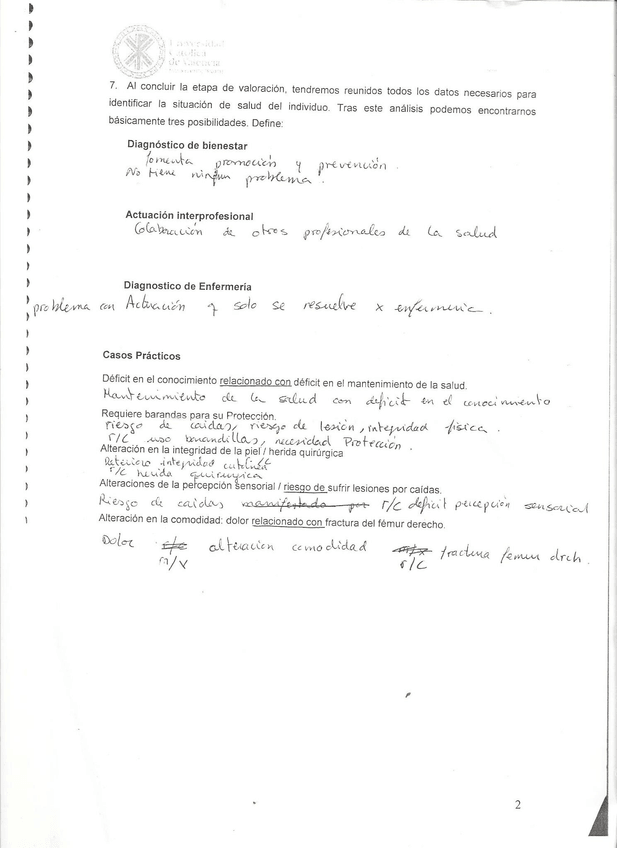 Universidad
Católica
de Valencia
7. Al concluir la etapa de valoración, tendremos reunidos todos los datos necesarios para
identificar la situación de salud del individuo. Tras este análisis podemos encontrarnos
básicamente tres posibilidades. Define:
Diagnóstico de bienestar
fomenta promoción y prevención.
No tiene ningun problema.
Actuación interprofesional
Colaboración de otros profesionales de la salud
Diagnostico de Enfermería
problema con Actuación y solo se resuelve x enfermeria.
Casos Prácticos
Déficit en el conocimiento relacionado con déficit en el mantenimiento de la salud.
Mantenimiento de la salud con deficit en el conocimiento
Requiere barandas para su Protección.
riesgo de caidas, riesgo de lesión, integridad física.
r/c uso barandillas, necesidad Protección.
Alteración en la integridad de la piel / herida quirúrgica
Deterioro integridad cutánea
r/c herida quirurgica
Alteraciones de la percepción sensorial / riesgo de sufrir lesiones por caídas.
Riesgo de caidas manifestada por r/c deficit percepción sensorial
Alteración en la comodidad: dolor relacionado con fractura del fémur derecho.
Dolor r/c alteracion comodidad m/x fractura femur drch.
m/x r/c
2